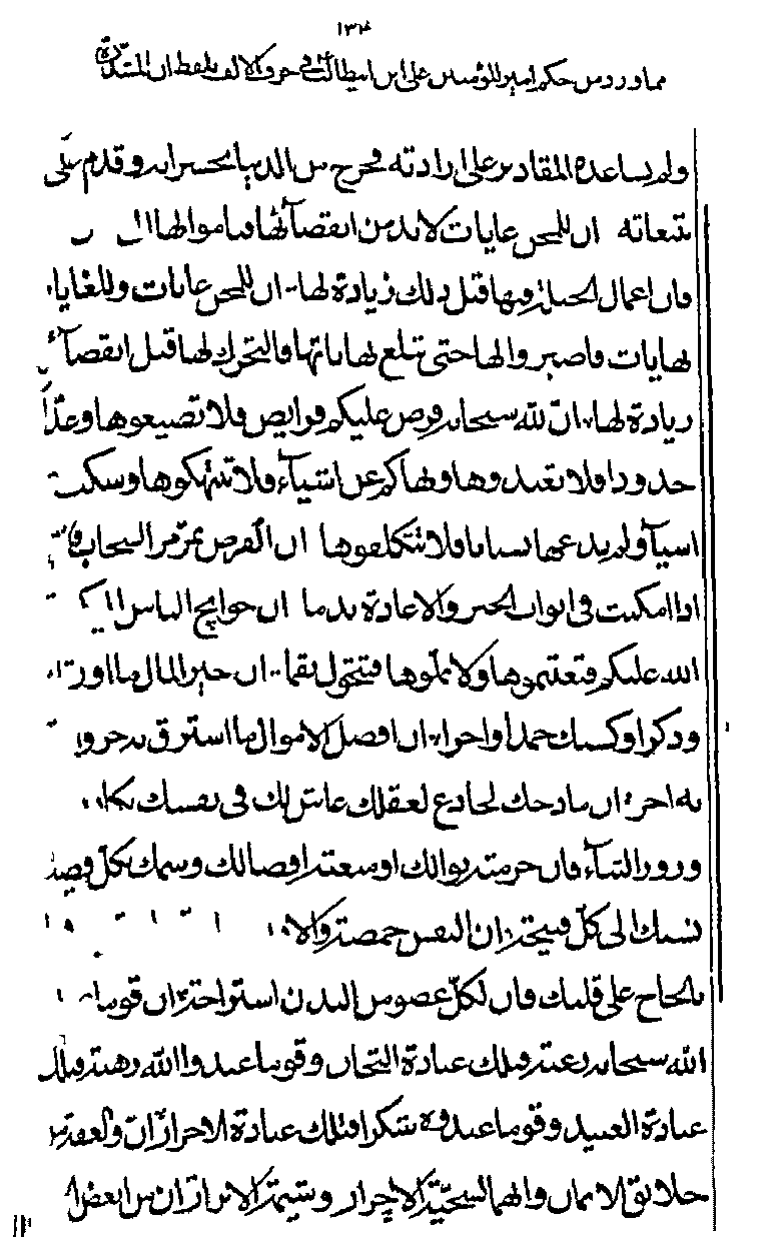 ١٣٤
مما ورد من حكم امير المؤمنين على ابن ابيطالب فى حرف الالف بلفظ ان المشددة
ولم تساعده المقادير على ارادته فخرج من الدنيا بحسراته وقدم على
تبعاته ان للمحن غايات لابد من انقضائها فناموا لها الى
فان اعمال الحيلة فيها قبل ذلك زيادة لها ان للمحن غايات وللغايات
نهايات فاصبروا لها حتى تبلغ نهاياتها فالتحرك لها قبل انقضائها
زيادة لها ان لله سبحانه فرض عليكم فرايض فلا تضيعوها وحد لكم
حدودا فلا تعتدوها ونهاكم عن اشياء فلا تنتهكوها وسكت عن
اشياء ولم يدعها نسيانا فلا تتكلفوها ان الفرص تمر مر السحاب
اذا امكنت فى ابواب الخير والا عادة ندما ان حوايج الناس اليكم
الله عليكم فتغتنموها ولا تملوها فتتحول نقما ان خير المال ما اورثك
وذكرا وكسبك حمدا واجرا ان افضل الاموال ما استرق به حر و
به اجر ان مادحك لخادع لعقلك غاش لك فى نفسك بكاذب
وزور الثناء فان حرمته نوالك او منعته افضالك وسمك بكل فضيحة
نسبك الى كل قبيحة ان النفس حمضة والاذن
بالحاح على قلبك فان لكل عضو من البدن استراحة ان قوما
الله سبحانه رغبة فتلك عبادة التجار وقوما عبدوا الله رهبة فتلك
عبادة العبيد وقوما عبدوه شكرا فتلك عبادة الاحرار ان
خلائق الايمان وانهما لسجية الاحرار وشيمة الابرار ان من ابغض